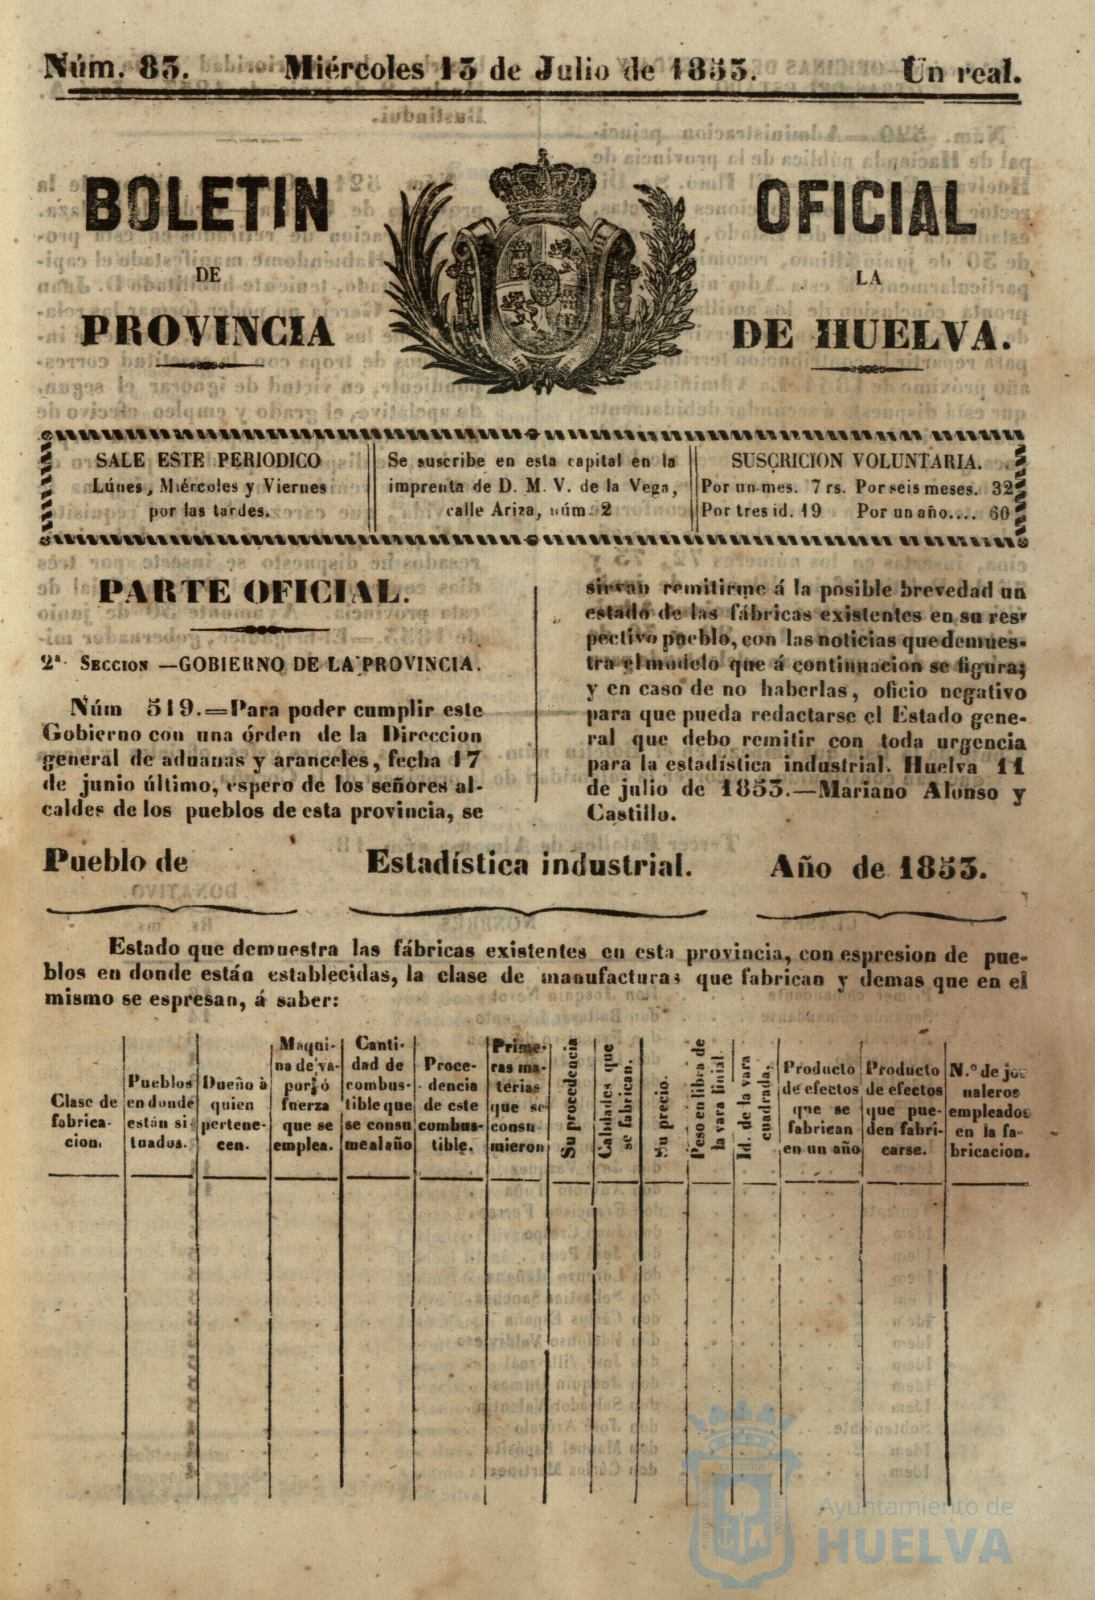 Núm. 83. Miércoles 13 de Julio de 1853. Un real.
BOLETIN OFICIAL
DE LA
PROVINCIA DE HUELVA.
SALE ESTE PERIODICO
Lúnes, Miércoles y Viernes
por las tardes.
Se suscribe en esta capital en la
imprenta de D. M. V. de la Vega,
calle Ariza, núm. 2
SUSCRICION VOLUNTARIA.
Por un mes. 7 rs. Por seis meses. 32
Por tres id. 19 Por un año.... 60
PARTE OFICIAL.
2ª. SECCION —GOBIERNO DE LA PROVINCIA.
Núm 519.=Para poder cumplir este
Gobierno con una órden de la Direccion
general de aduanas y aranceles, fecha 17
de junio último, espero de los señores al-
caldes de los pueblos de esta provincia, se
sirvan remitirme á la posible brevedad un
estado de las fábricas existentes en su res-
pectivo pueblo, con las noticias que demues-
tra el modelo que á continuacion se figura;
y en caso de no haberlas, oficio negativo
para que pueda redactarse el Estado gene-
ral que debo remitir con toda urgencia
para la estadística industrial. Huelva 11
de julio de 1853.—Mariano Alonso y
Castillo.
Pueblo de Estadística industrial. Año de 1853.
Estado que demuestra las fábricas existentes en esta provincia, con espresion de pue-
blos en donde están establecidas, la clase de manufacturas que fabrican y demas que en el
mismo se espresan, á saber:
Clase de
fabrica-
cion.
Pueblos
en donde
están si-
tuados.
Dueño à
quien
pertene-
cen.
Maqui-
na de va-
por ó
fuerza
que se
emplea.
Canti-
dad de
combus-
tible que
se consu
me al año
Proce-
dencia
de este
combus-
tible.
Prime-
ras ma-
terias
que se
consu
mieron
Su procedencia
Calidades que
se fabrican.
Su precio.
Peso en libra de
la vara linial.
Id. de la vara
cuadrada.
Producto
de efectos
que se
fabrican
en un año
Producto
de efectos
que pue-
den fabri-
carse.
N.º de jor
naleros
empleados
en la fa-
bricacion.
Ayuntamiento de
HUELVA